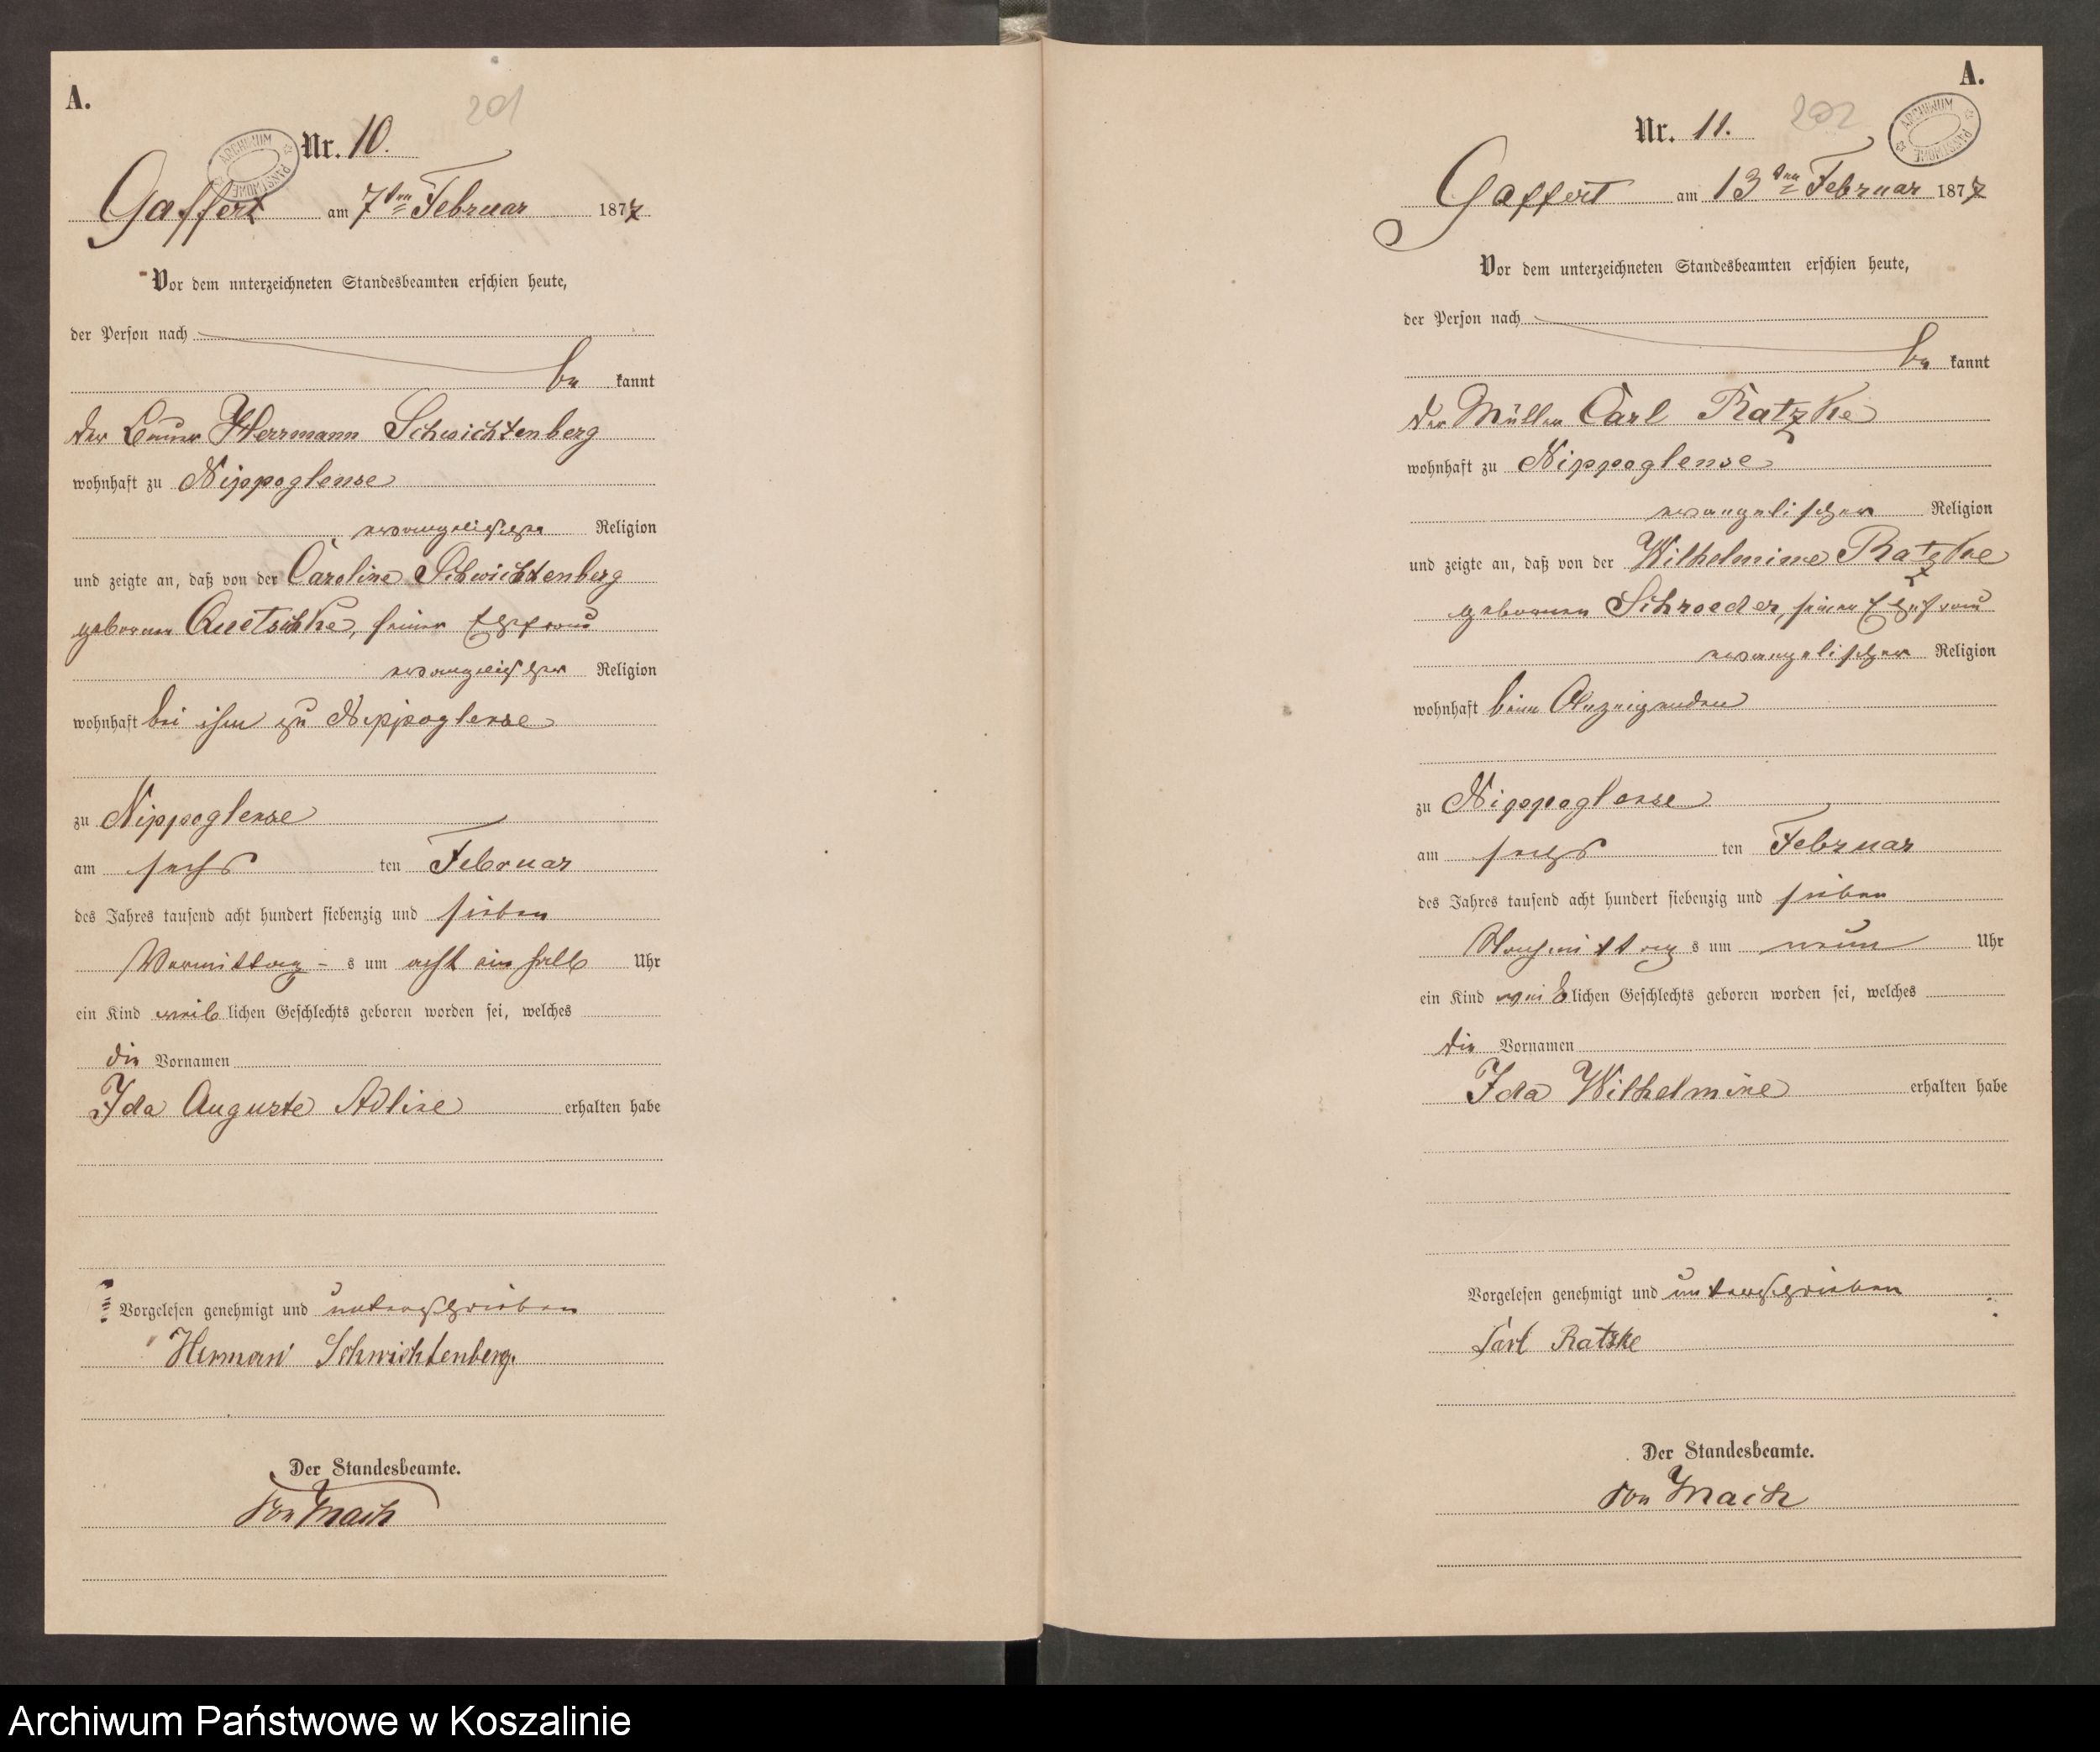 A.
201
Nr. 10.
ARCHIWUM PAŃSTWOWE
Gaffert am 7ten Februar 1877
Vor dem unterzeichneten Standesbeamten erschien heute,
der Person nach
be kannt
der Bauer Herrmann Schwichtenberg
wohnhaft zu Nippoglense
evangelischer Religion
und zeigte an, daß von der Caroline Schwichtenberg
geborenen Quetschke, seiner Ehefrau
evangelischer Religion
wohnhaft bei ihm zu Nippoglense
zu Nippoglense
am sechs ten Februar
des Jahres tausend acht hundert siebenzig und sieben
Vormittag - s um acht ein halb Uhr
ein Kind weib lichen Geschlechts geboren worden sei, welches
die Vornamen
Ida Auguste Adline erhalten habe
Vorgelesen genehmigt und unterschrieben
Herman Schwichtenberg.
Der Standesbeamte.
von Mach
A.
202
Nr. 11.
ARCHIWUM PAŃSTWOWE
Gaffert am 13ten Februar 1877
Vor dem unterzeichneten Standesbeamten erschien heute,
der Person nach
be kannt
der Müller Carl Ratzke
wohnhaft zu Nippoglense
evangelischer Religion
und zeigte an, daß von der Wilhelmine Ratzke
geborenen Schroeder, seiner Ehefrau
evangelischer Religion
wohnhaft beim Anzeigenden
zu Nippoglense
am sechs ten Februar
des Jahres tausend acht hundert siebenzig und sieben
Nachmittag s um neun Uhr
ein Kind weib lichen Geschlechts geboren worden sei, welches
die Vornamen
Ida Wilhelmine erhalten habe
Vorgelesen genehmigt und unterschrieben
Carl Ratzke
Der Standesbeamte.
von Mach
Archiwum Państwowe w Koszalinie